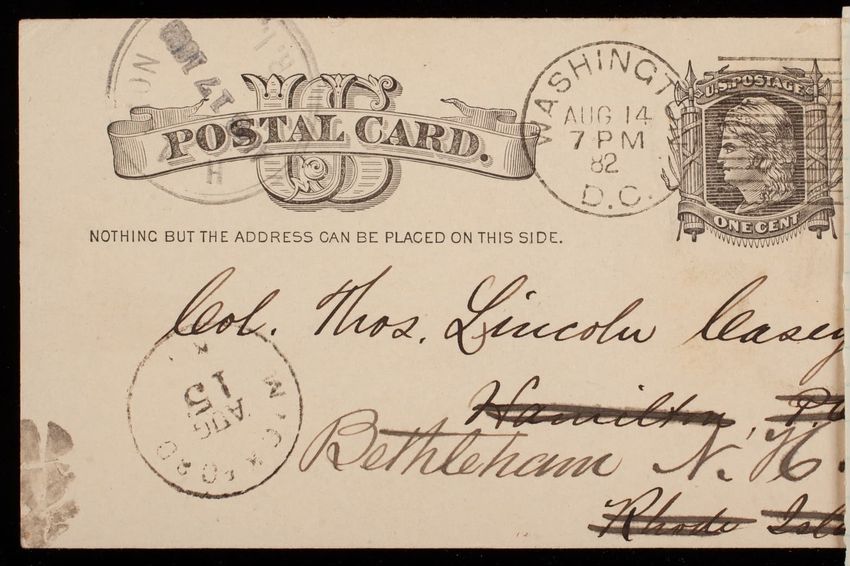 U S
POSTAL CARD.
WASHINGTON
AUG 14
7 PM
82
D.C.
U.S. POSTAGE
ONE CENT
NOTHING BUT THE ADDRESS CAN BE PLACED ON THIS SIDE.
Col. Thos. Lincoln Casey
Hamilton, P.
Bethleham N. H.
Rhode Isl
WICKFORD
AUG
15
17
R.I.